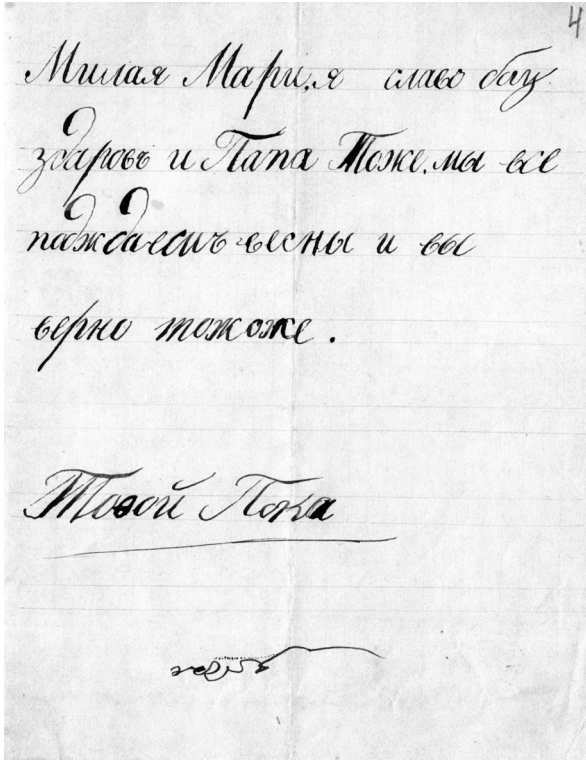 4
Милая Мари, я славо бау
здаровъ и Папа Тоже. мы все
падждаемъ весны и вы
верно тожоже.
Твой Пока